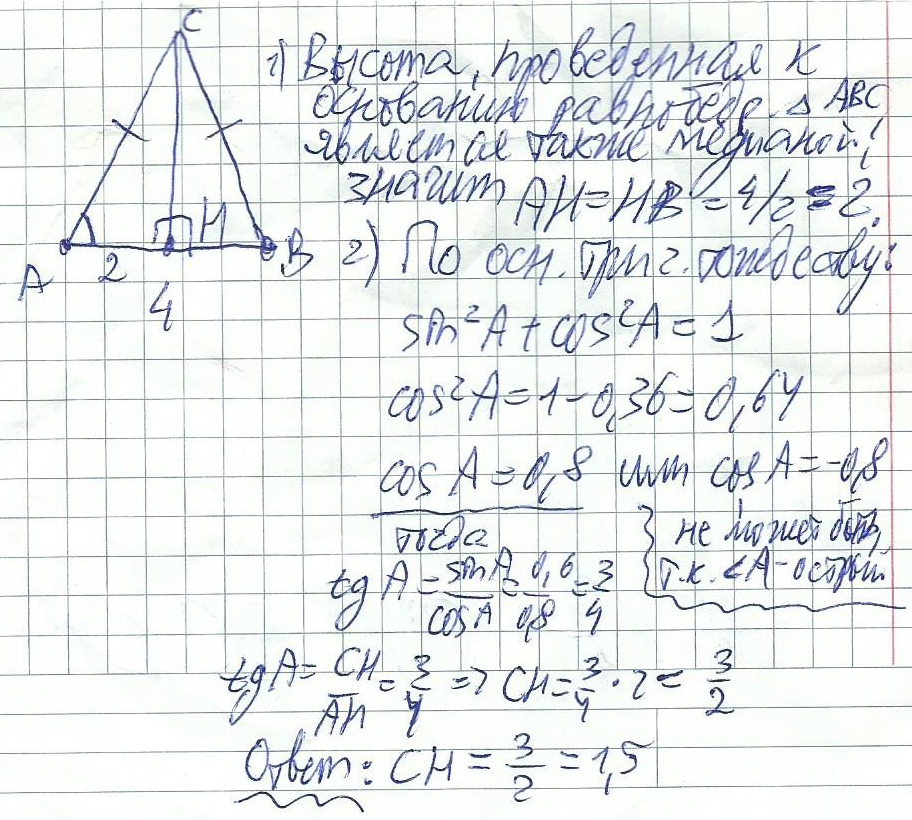 C
1) Высота, проведенная к
основанию равнобедр. △ ABC
является также медианой!
значит AH=HB=4/2=2.
A 2 H B
4
2) По осн. триг. тождеству:
sin²A+cos²A=1
cos²A=1-0,36=0,64
cos A=0,8 или cos A=-0,8
тогда
не может быть,
т.к. <A-острый
tg A=sinA/cosA=0,6/0,8=3/4
tgA=CH/AH=3/4=>CH=3/4·2=3/2
Ответ: CH=3/2=1,5